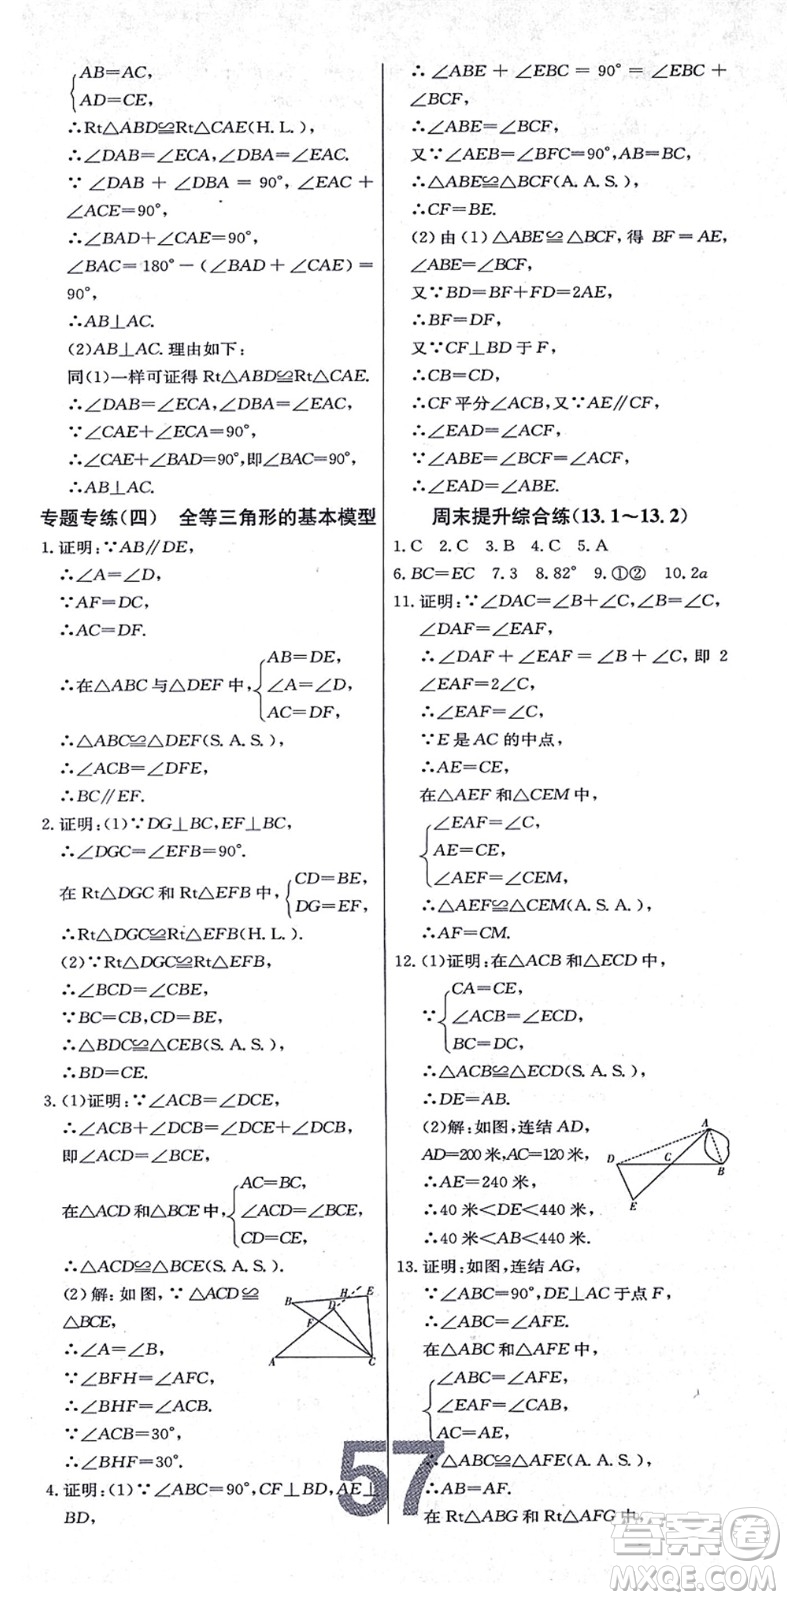 AB=AC,
AD=CE,
∴Rt△ABD≌Rt△CAE(H.L.),
∴∠DAB=∠ECA,∠DBA=∠EAC.
∵∠DAB+∠DBA=90°,∠EAC+
∠ACE=90°,
∴∠BAD+∠CAE=90°,
∠BAC=180°-(∠BAD+∠CAE)=
90°,
∴AB⊥AC.
(2)AB⊥AC.理由如下:
同(1)一样可证得Rt△ABD≌Rt△CAE.
∴∠DAB=∠ECA,∠DBA=∠EAC,
∵∠CAE+∠ECA=90°,
∴∠CAE+∠BAD=90°,即∠BAC=90°,
∴AB⊥AC.
专题专练(四) 全等三角形的基本模型
1.证明:∵AB∥DE,
∴∠A=∠D,
∵AF=DC,
∴AC=DF.
∴在△ABC与△DEF中,
AB=DE,
∠A=∠D,
AC=DF,
∴△ABC≌△DEF(S.A.S.),
∴∠ACB=∠DFE,
∴BC∥EF.
2.证明:(1)∵DG⊥BC,EF⊥BC,
∴∠DGC=∠EFB=90°.
在Rt△DGC和Rt△EFB中,
CD=BE,
DG=EF,
∴Rt△DGC≌Rt△EFB(H.L.).
(2)∵Rt△DGC≌Rt△EFB,
∴∠BCD=∠CBE,
∵BC=CB,CD=BE,
∴△BDC≌△CEB(S.A.S.),
∴BD=CE.
3.(1)证明:∵∠ACB=∠DCE,
∴∠ACB+∠DCB=∠DCE+∠DCB,
即∠ACD=∠BCE,
在△ACD和△BCE中,
AC=BC,
∠ACD=∠BCE,
CD=CE,
∴△ACD≌△BCE(S.A.S.).
(2)解:如图,∵△ACD≌
△BCE,
∴∠A=∠B,
∵∠BFH=∠AFC,
∴∠BHF=∠ACB.
∵∠ACB=30°,
∴∠BHF=30°.
B
D
H
E
F
A
C
4.证明:(1)∵∠ABC=90°,CF⊥BD,AE⊥
BD,
∴∠ABE+∠EBC=90°=∠EBC+
∠BCF,
∴∠ABE=∠BCF,
又∵∠AEB=∠BFC=90°,AB=BC,
∴△ABE≌△BCF(A.A.S.),
∴CF=BE.
(2)由(1)△ABE≌△BCF,得BF=AE,
∠ABE=∠BCF,
又∵BD=BF+FD=2AE,
∴BF=DF,
又∵CF⊥BD于F,
∴CB=CD,
∴CF平分∠ACB,又∵AE∥CF,
∴∠EAD=∠ACF,
∵∠ABE=∠BCF=∠ACF,
∴∠EAD=∠ABE.
周末提升综合练(13.1～13.2)
1.C 2.C 3.B 4.C 5.A
6.BC=EC 7.3 8.82° 9.①② 10.2a
11.证明:∵∠DAC=∠B+∠C,∠B=∠C,
∠DAF=∠EAF,
∴∠DAF+∠EAF=∠B+∠C,即2
∠EAF=2∠C,
∴∠EAF=∠C,
∵E是AC的中点,
∴AE=CE,
在△AEF和△CEM中,
∠EAF=∠C,
AE=CE,
∠AEF=∠CEM,
∴△AEF≌△CEM(A.S.A.),
∴AF=CM.
12.(1)证明:在△ACB和△ECD中,
∵
CA=CE,
∠ACB=∠ECD,
BC=DC,
∴△ACB≌△ECD(S.A.S.),
∴DE=AB.
(2)解:如图,连结AD,
AD=200米,AC=120米,
∴AE=240米,
∴40米<DE<440米,
∴40米<AB<440米.
A
D
C
B
E
13.证明:如图,连结AG,
∵∠ABC=90°,DE⊥AC于点F,
∴∠ABC=∠AFE.
在△ABC和△AFE中,
∠ABC=∠AFE,
∠EAF=∠CAB,
AC=AE,
∴△ABC≌△AFE(A.A.S.),
∴AB=AF.
在Rt△ABG和Rt△AFG中,
57
答案圈
MXQE.COM